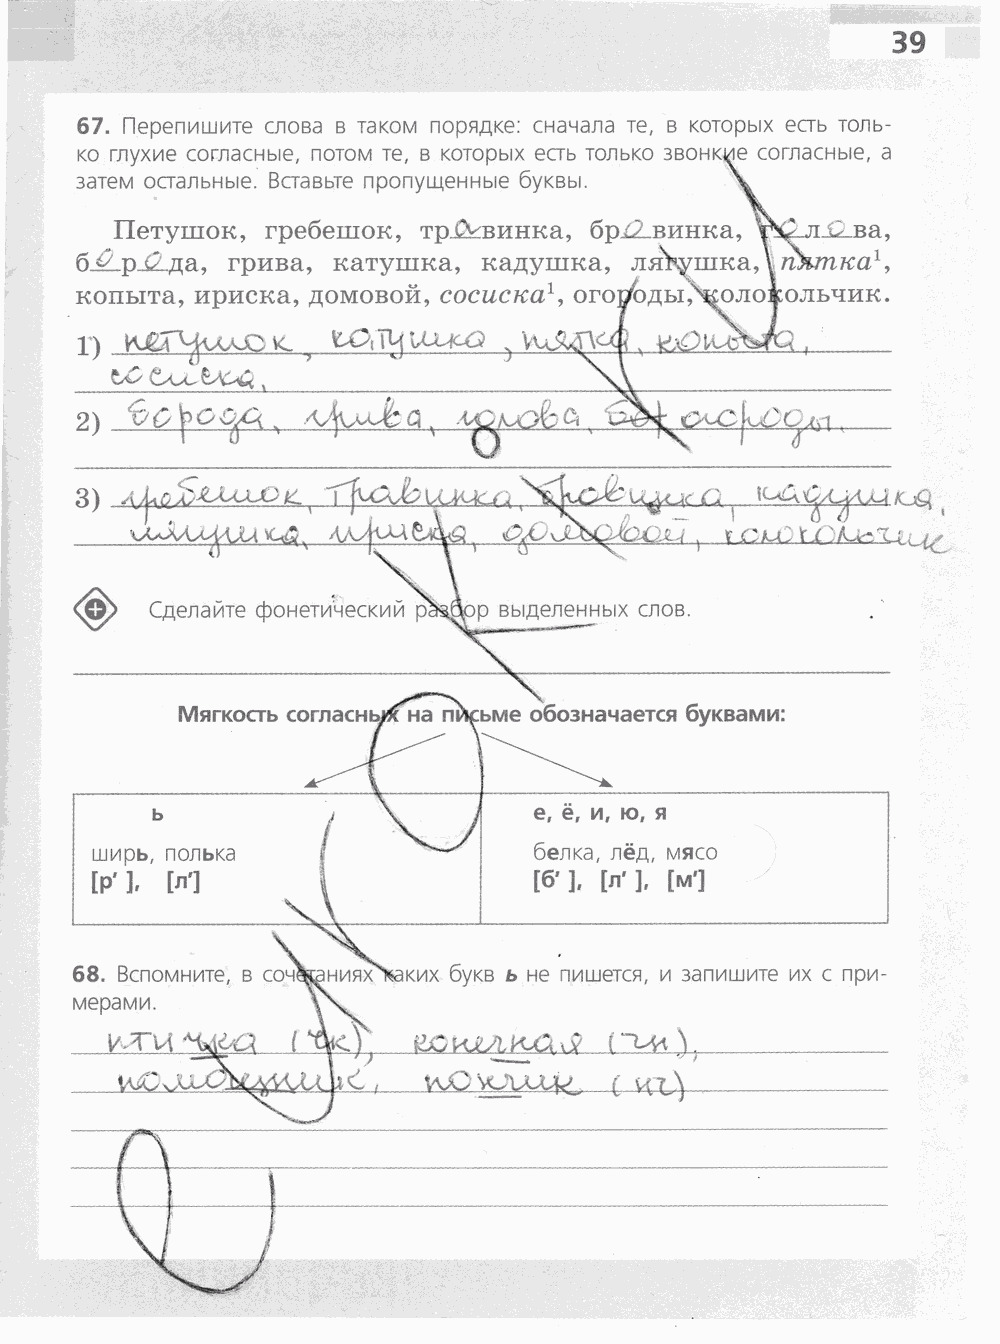 39
67. Перепишите слова в таком порядке: сначала те, в которых есть толь-
ко глухие согласные, потом те, в которых есть только звонкие согласные, а
затем остальные. Вставьте пропущенные буквы.
Петушок, гребешок, травинка, бровинка, голова,
борода, грива, катушка, кадушка, лягушка, пятка¹,
копыта, ириска, домовой, сосиска¹, огороды, колокольчик.
1) петушок, катушка, пятка, копыта,
сосиска.
2) борода, грива, голова, огороды.
3) гребешок, травинка, бровинка, кадушка,
лягушка, ириска, домовой, колокольчик
Сделайте фонетический разбор выделенных слов.
Мягкость согласных на письме обозначается буквами:
ь
ширь, полька
[р′ ], [л′]
е, ё, и, ю, я
белка, лёд, мясо
[б′ ], [л′ ], [м′]
68. Вспомните, в сочетаниях каких букв ь не пишется, и запишите их с при-
мерами.
птичка (чк), конечная (чн),
помощник, пончик (нч)
еуроки.ру